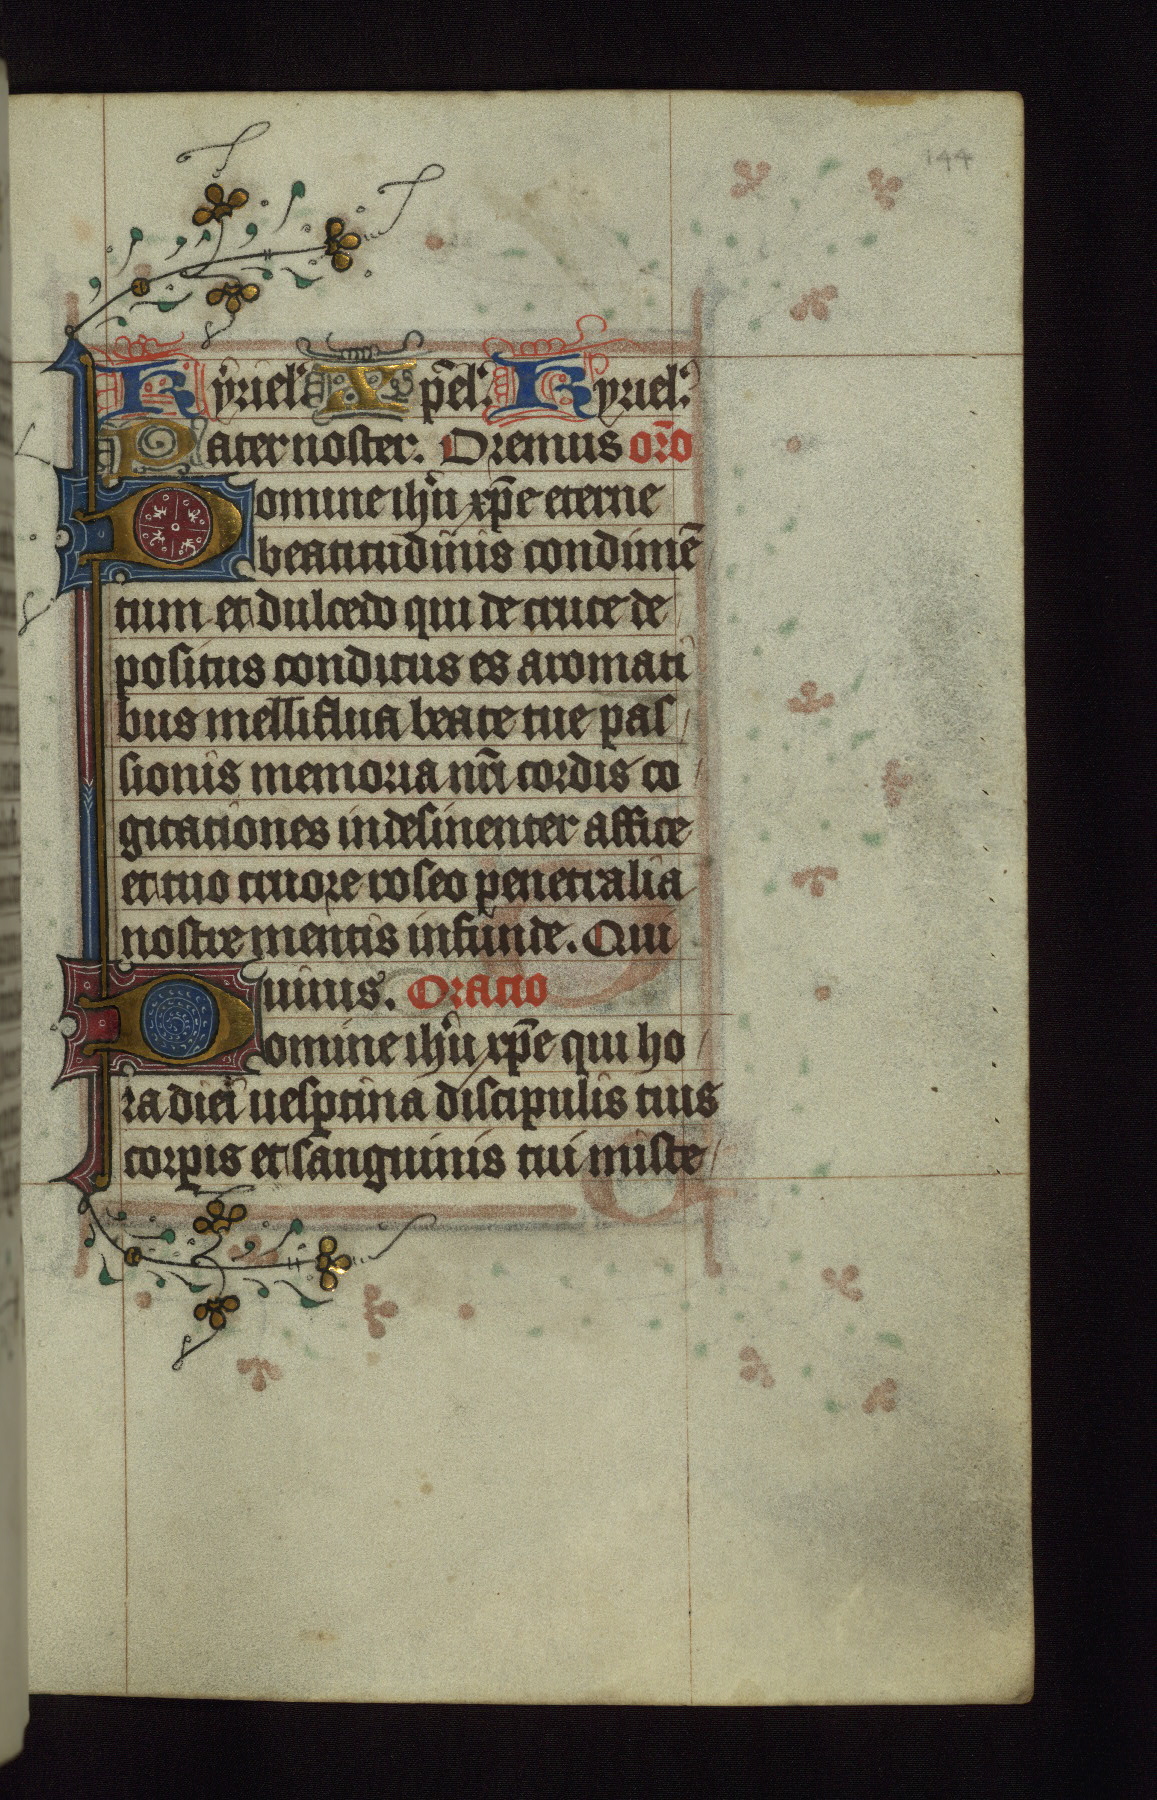 144
Kyriel'. Xp̄el'. Kyriel'.
Pater noster. Oremus or̄o
Domine ihu̅ xp̄e eterne
beatitudinis condimē
tum et dulcedo qui de cruce de
positus conditus es aromati
bus melliflua beate tue pas
sionis memoria nr̄i cordis co
gitationes indesinenter affice
et tuo cruore roseo penetralia
nostre mentis infunde. Qui
uiuis. Oracio
Domine ihu̅ xp̄e qui ho
ra diei uesꝑtina discipulis tuis
corꝑis et sanguinis tui miste